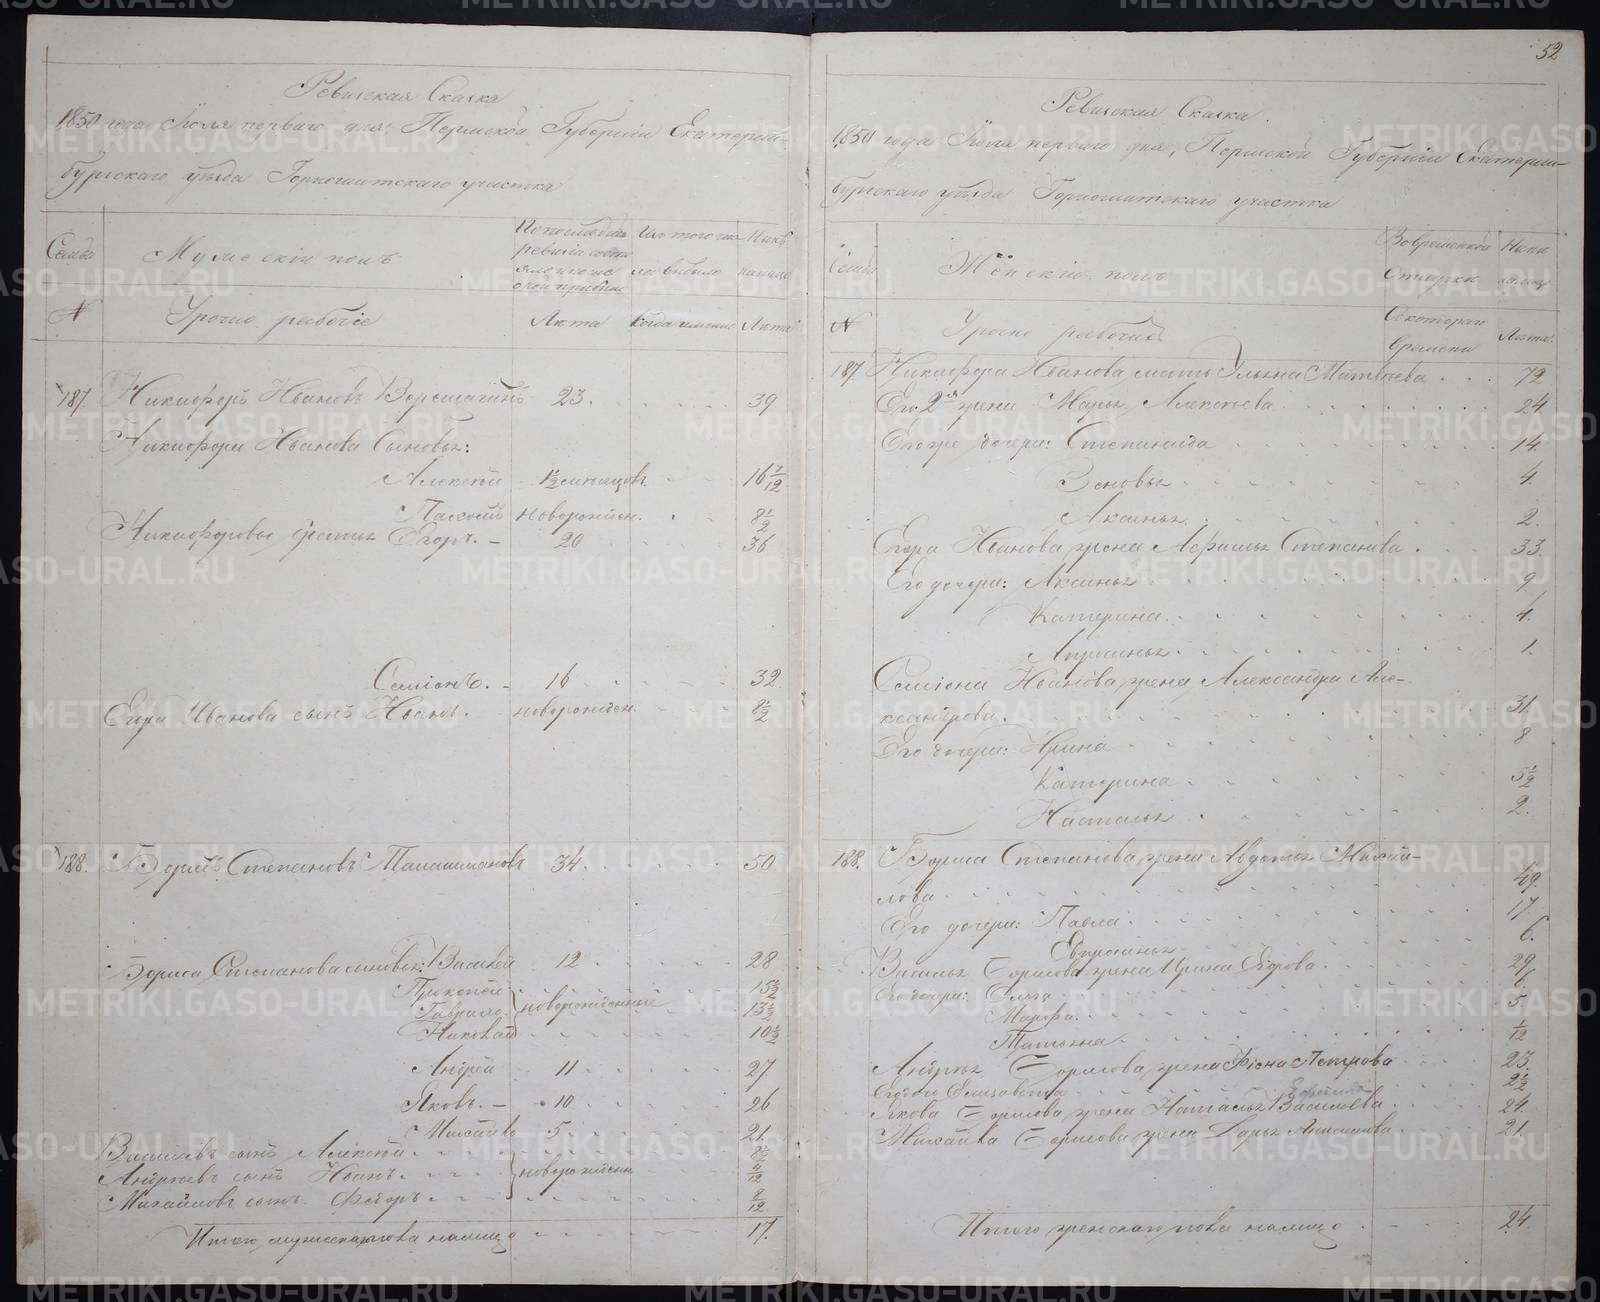 Ревизская Сказка
1850 года Июля перваго дня, Пермской Губерніи Екатерин-
бургскаго уѣзда Горнощитскаго участка
Семьи
Мужескій полъ
По последней
ревизіи состо
яло и после
оной прибыло
Изъ того чис
ла выбыло
Нынѣ
на лицо
№
Урочно рабочіе
Лѣта
Когда именно
Лѣта
187. Никифоръ Ивановъ Верещагинъ 23. 39
Никифора Иванова Сыновья:
Алексѣй 1/2 месяцовъ. 16 7/12
новорожден. 8 1/2
Никифоровы братья Егоръ. 20 36
Семіонъ. 16 32
Егора Иванова сынъ Иванъ. новорожден. 8 1/2
188. Борисъ Степановъ 34. 50.
Бориса Степанова сыновья: Василей 12 28
Прокопей 15 1/2
Гаврило новорожденные 13 1/2
Николай 10 1/2
Андрей 11 27.
Яковъ. 10 26
Михайло 5 21.
Васильевъ сынъ Алексѣй. 8 1/2
Андреевъ сынъ Иванъ. новорожден 11/12
Михайловъ сынъ Федоръ. 8/12
Итого мужескаго пола налицо 17.
52
Ревизская Сказка.
1850 года Июля перваго дня, Пермской Губерніи Екатерин-
бургскаго уѣзда Горнощитскаго участка
Семьи
Женскій полъ
Во временной
Отлучки
Нынѣ
на лицо
№
Урочно рабочихъ
Съ котораго
Времени
Лѣта.
187. Никифора Иванова мать Ульяна Матвѣева 72
Его 2я жена Марья Алексѣева 24.
Его же дочери: Степанида 14.
Зеновья 4.
Аксинья. 2.
Егора Иванова жена Афимья Степанова. 33.
Его дочери: Аксинья 9
Катерина. 4.
1.
Семіона Иванова жена Александра Але-
ксандрова. 31.
Его дочери: Ирина 8
Катерина 5 1/2
Настасья 2.
188. Бориса Степанова жена Авдотья Михай-
лова 49.
Его дочери: Павла. 17
Евфросинья 6.
Василья Борисова жена Ирина Егорова. 29.
Его дочери: Ольга 6
Марфа. 5.
Татьяна 1/12
Андрея Борисова жена Фіона Петрова 23.
Его дочь Елизавета 2 1/2
Якова Борисова жена Наталья Васильева 24.
Михайла Борисова жена Дарья 21.
Итого женскаго пола налицо 24.
METRIKI.GASO-URAL.RU